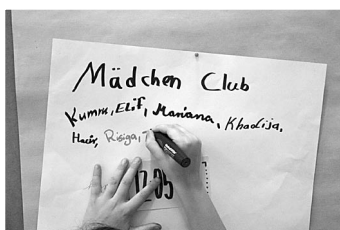 Mädchen Club
Kumru, Elif, Mariana, Khadija,
Risiga,
12.05